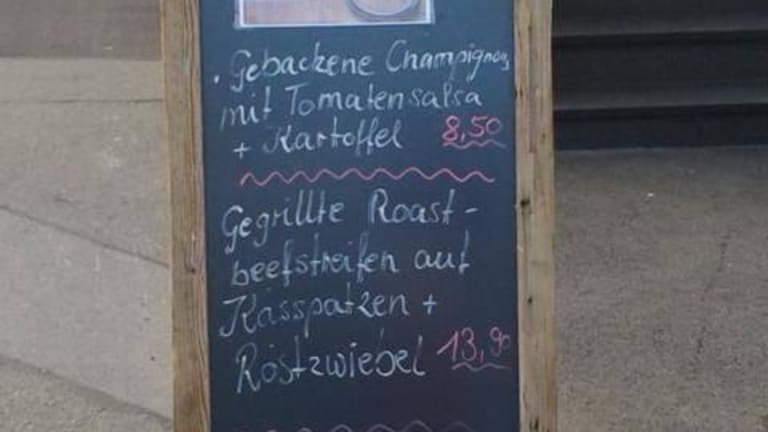 . Gebackene Champignons
mit Tomatensalsa
+ Kartoffel 8,50
Gegrillte Roast-
beefstreifen auf
Kässpatzen +
Röstzwiebel 13,90